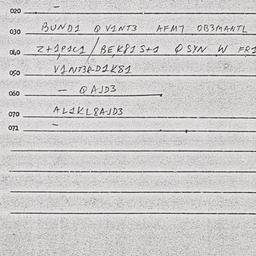 020 –
030 BUND1 Q V1NT3 AFM7 OB3MANTL
040 Z+1P1L1 / BEK81S+1 Q SYN W FR1
050 V1NT3R-D1K81
060 – Q AJD3
070 AL1KL8AJD3
071 –